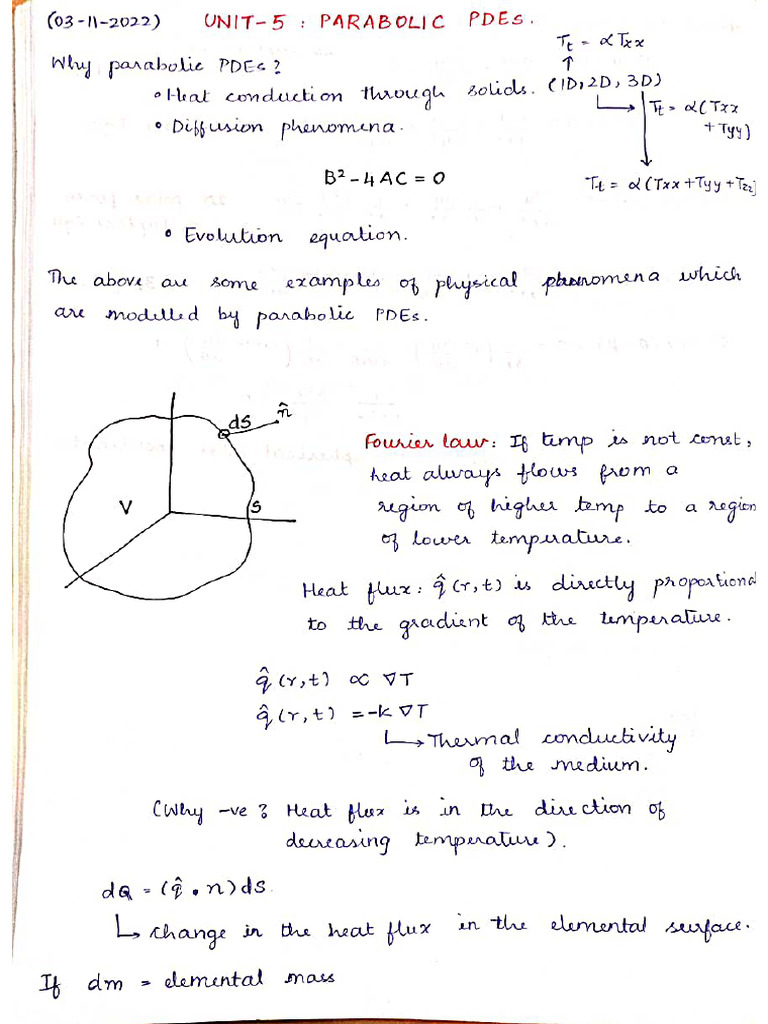 (03-11-2022) UNIT-5 : PARABOLIC PDEs.
T_t = αT_xx
Why parabolic PDEs?
• Heat conduction through solids. (1D, 2D, 3D)
T_t = α(T_xx + T_yy)
• Diffusion phenomena.
B² - 4AC = 0
T_t = α(T_xx + T_yy + T_zz)
• Evolution equation.
The above are some examples of physical phenomena which
are modelled by parabolic PDEs.
dS n̂
V S
Fourier law: If temp is not const,
heat always flows from a
region of higher temp to a region
of lower temperature.
Heat flux: q̂(r,t) is directly proportional
to the gradient of the temperature.
q̂(r,t) ∝ ∇T
q̂(r,t) = -k∇T
Thermal conductivity
of the medium.
(Why -ve? Heat flux is in the direction of
decreasing temperature).
dQ = (q̂ • n)dS.
change in the heat flux in the elemental surface.
If dm = elemental mass